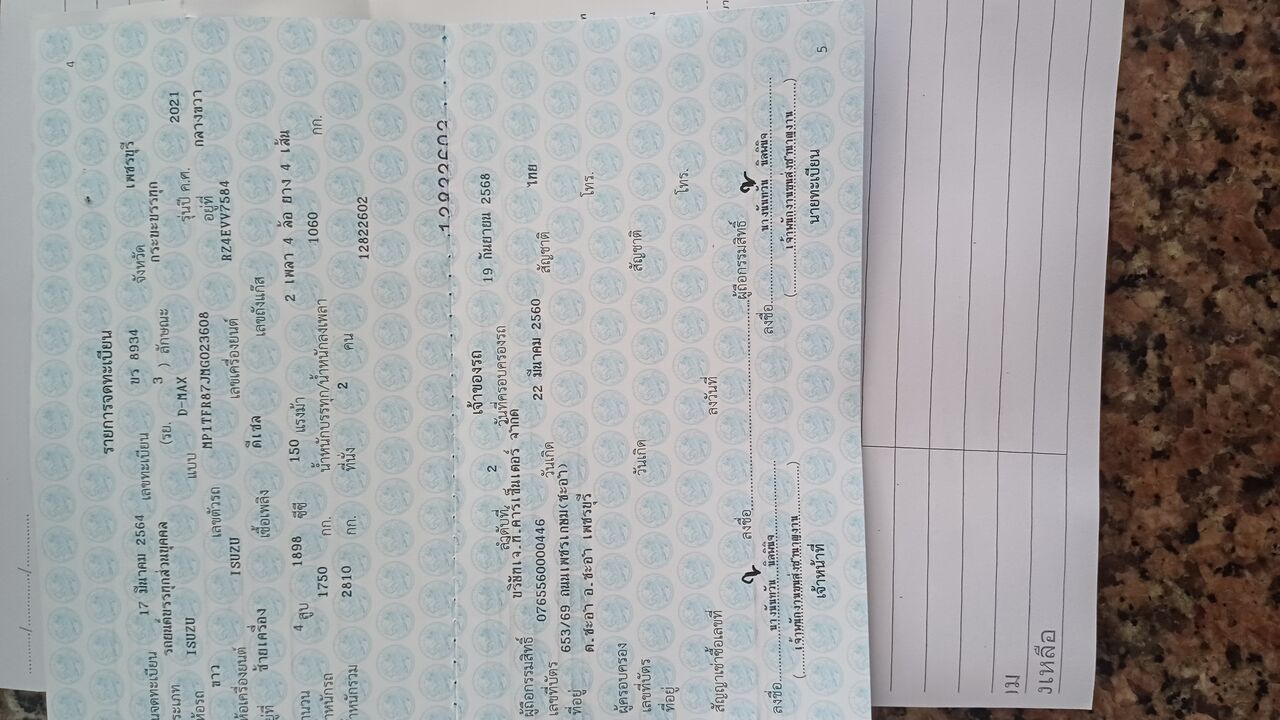 4
รายการจดทะเบียน
นจดทะเบียน 17 มีนาคม 2564 เลขทะเบียน ขร 8934 จังหวัด เพชรบุรี
ระเภท รถยนต์บรรทุกส่วนบุคคล (รย. 3 ) ลักษณะ กระบะบรรทุก
ห้อรถ ISUZU แบบ D-MAX รุ่นปี ค.ศ. 2021
ขาว เลขตัวรถ MP1TFR87JMG023608 อยู่ที่ กลางขวา
ห้อเครื่องยนต์ ISUZU เลขเครื่องยนต์ RZ4EVV7584
ยู่ที่ ซ้ายเครื่อง เชื้อเพลิง ดีเซล เลขถังแก๊ส
ำนวน 4 สูบ 1898 ซีซี 150 แรงม้า 2 เพลา 4 ล้อ ยาง 4 เส้น
้ำหนักรถ 1750 กก. น้ำหนักบรรทุก/น้ำหนักลงเพลา 1060 กก.
้ำหนักรวม 2810 กก. ที่นั่ง 2 คน
12822602
12822602
เจ้าของรถ
ลำดับที่ 2 วันที่ครอบครองรถ 19 กันยายน 2568
ผู้ถือกรรมสิทธิ์ บริษัทเจ.ที.คาร์เซ็นเตอร์ จำกัด
เลขที่บัตร 0765560000446 วันเกิด 22 มีนาคม 2560 สัญชาติ ไทย
ที่อยู่ 653/69 ถนนเพชรเกษม(ชะอำ)
ต.ชะอำ อ.ชะอำ เพชรบุรี โทร.
ผู้ครอบครอง
เลขที่บัตร วันเกิด สัญชาติ
ที่อยู่ โทร.
สัญญาเช่าซื้อเลขที่ ลงวันที่
ลงชื่อ ผู้ถือกรรมสิทธิ์
ลงชื่อ ลงชื่อ
(เจ้าพนักงานขนส่งชำนาญงาน) (เจ้าพนักงานขนส่งชำนาญงาน)
เจ้าหน้าที่ นายทะเบียน
5